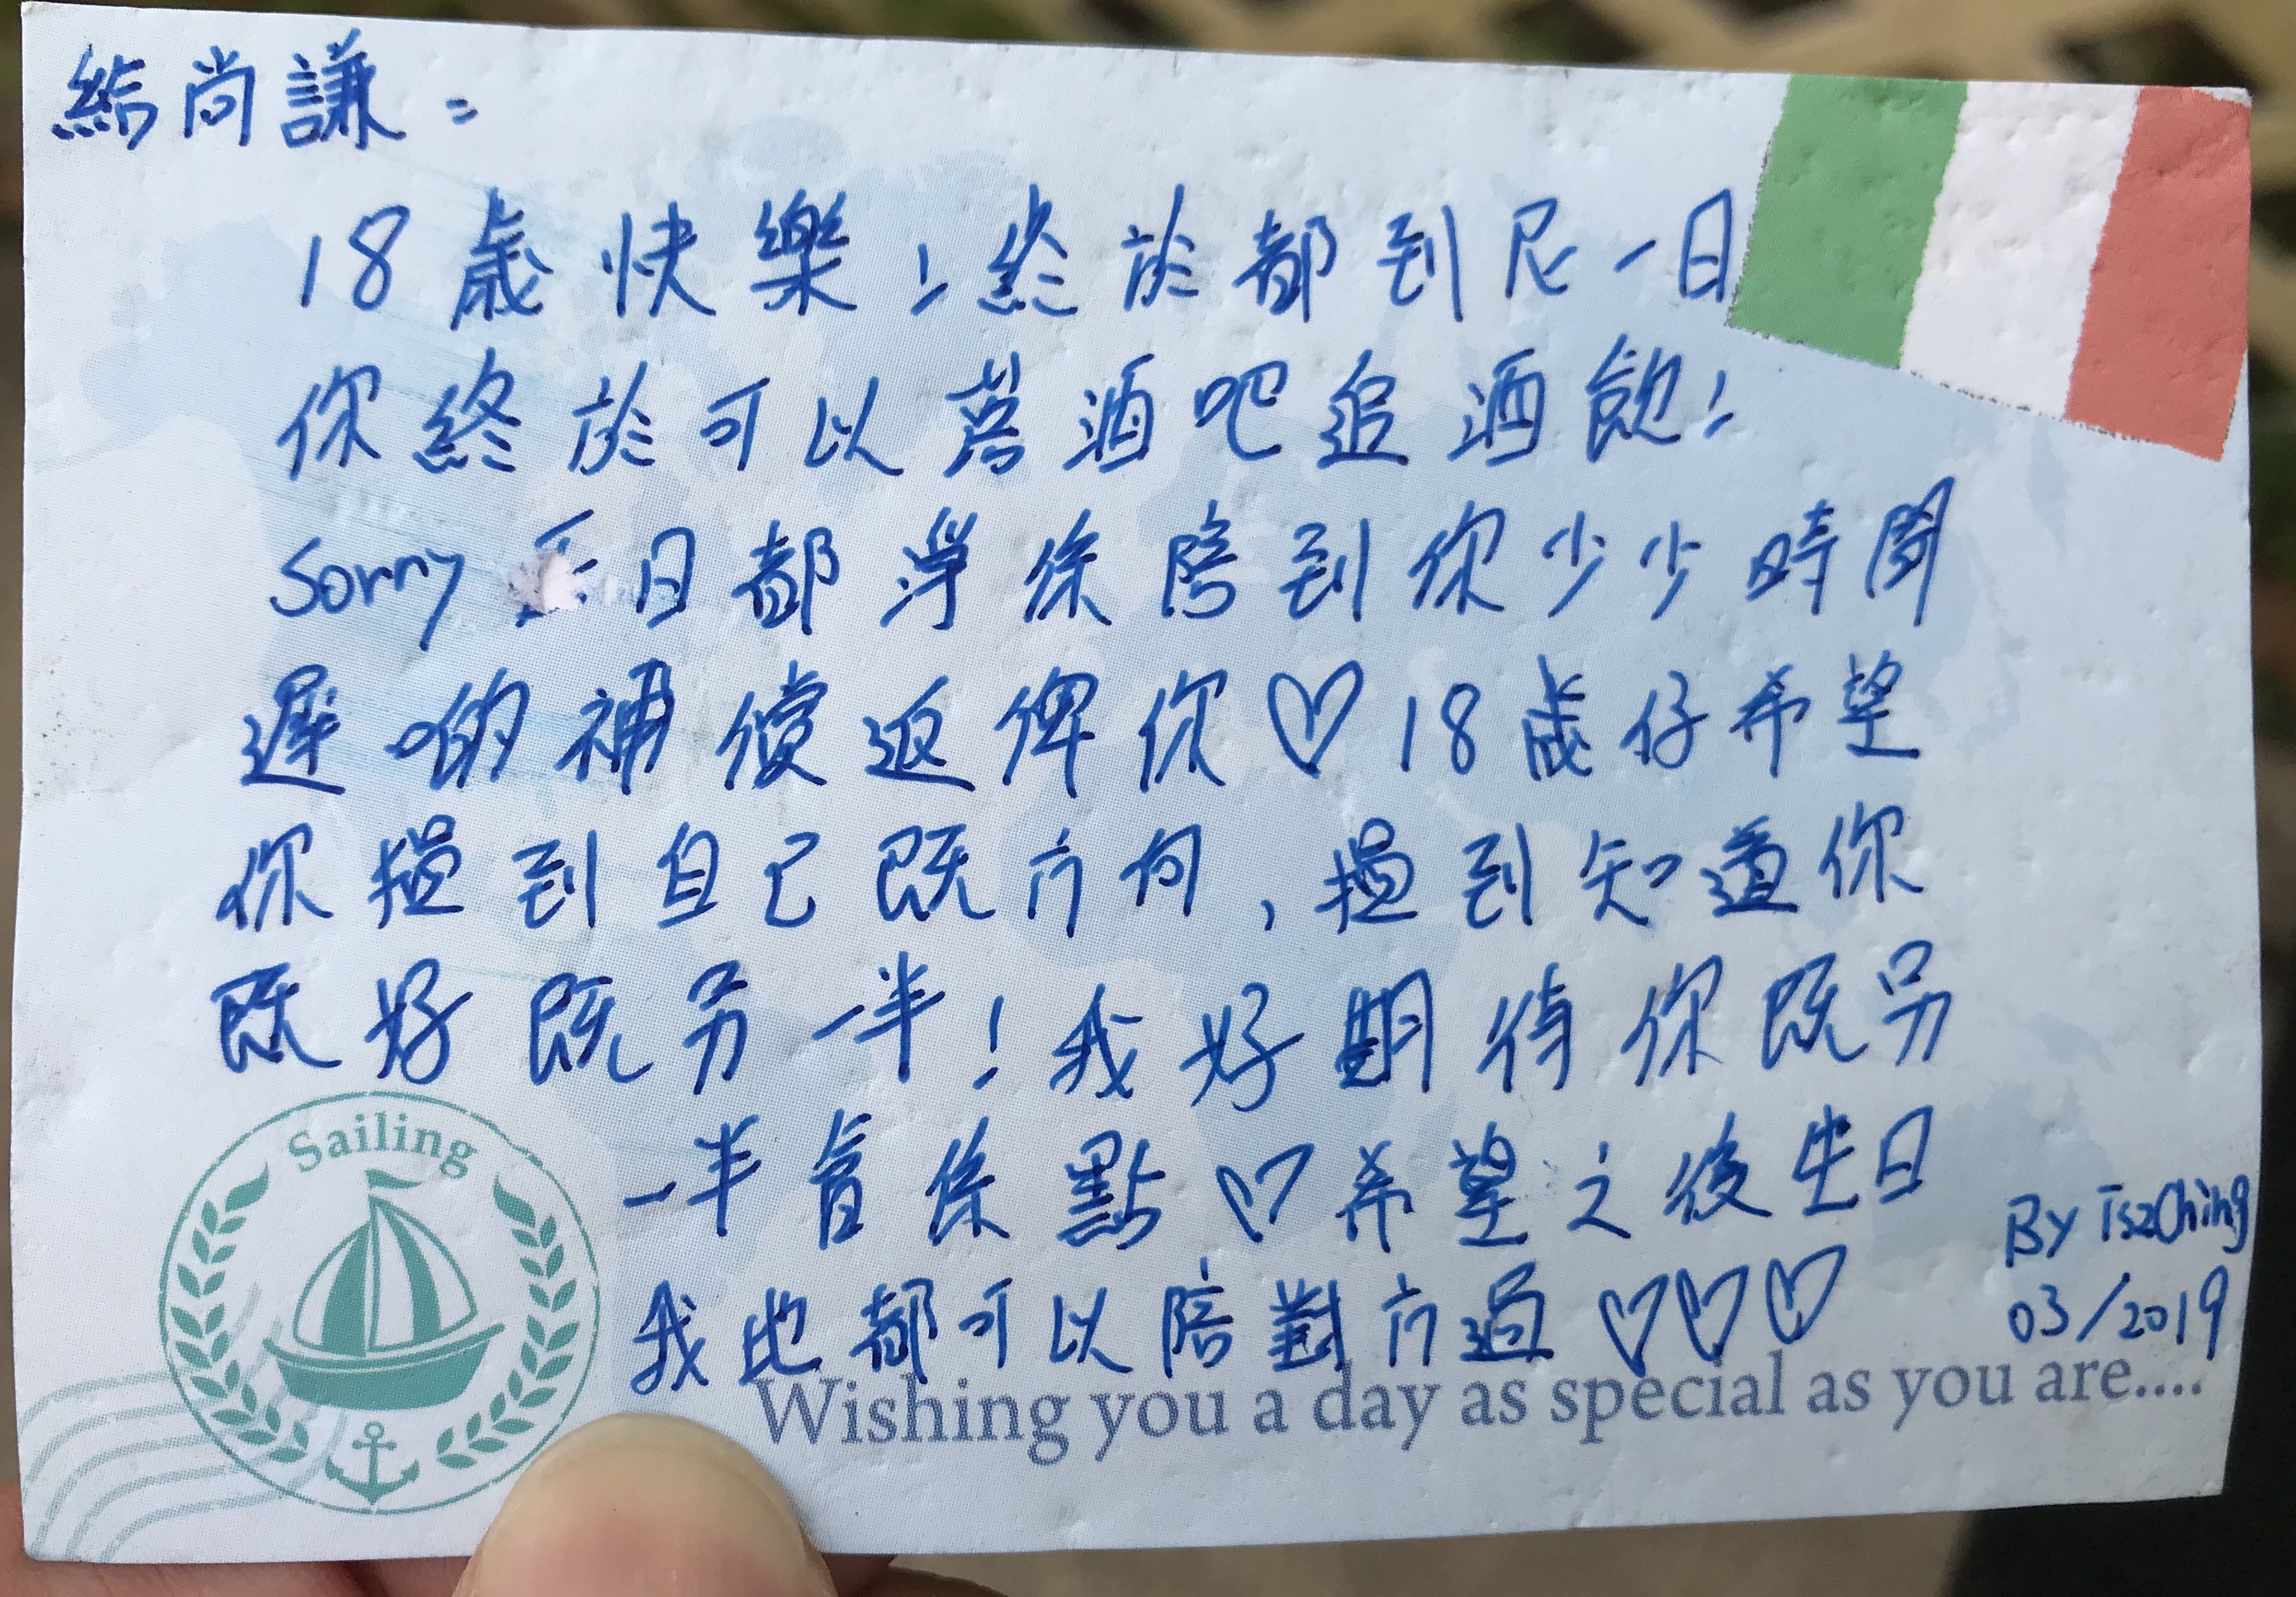 給尚謙：
18歲快樂！終於都到尼一日
你終於可以落酒吧追酒飲！
Sorry 日都淨係陪到你少少時間
遲啲補償返俾你♡18歲仔希望
你揾到自己既方向，揾到知道你
既好既另一半！我好期待你既另
一半會係點♡希望之後生日
我地都可以陪對方過♡♡♡
By TszChing
03/2019
Sailing
Wishing you a day as special as you are....